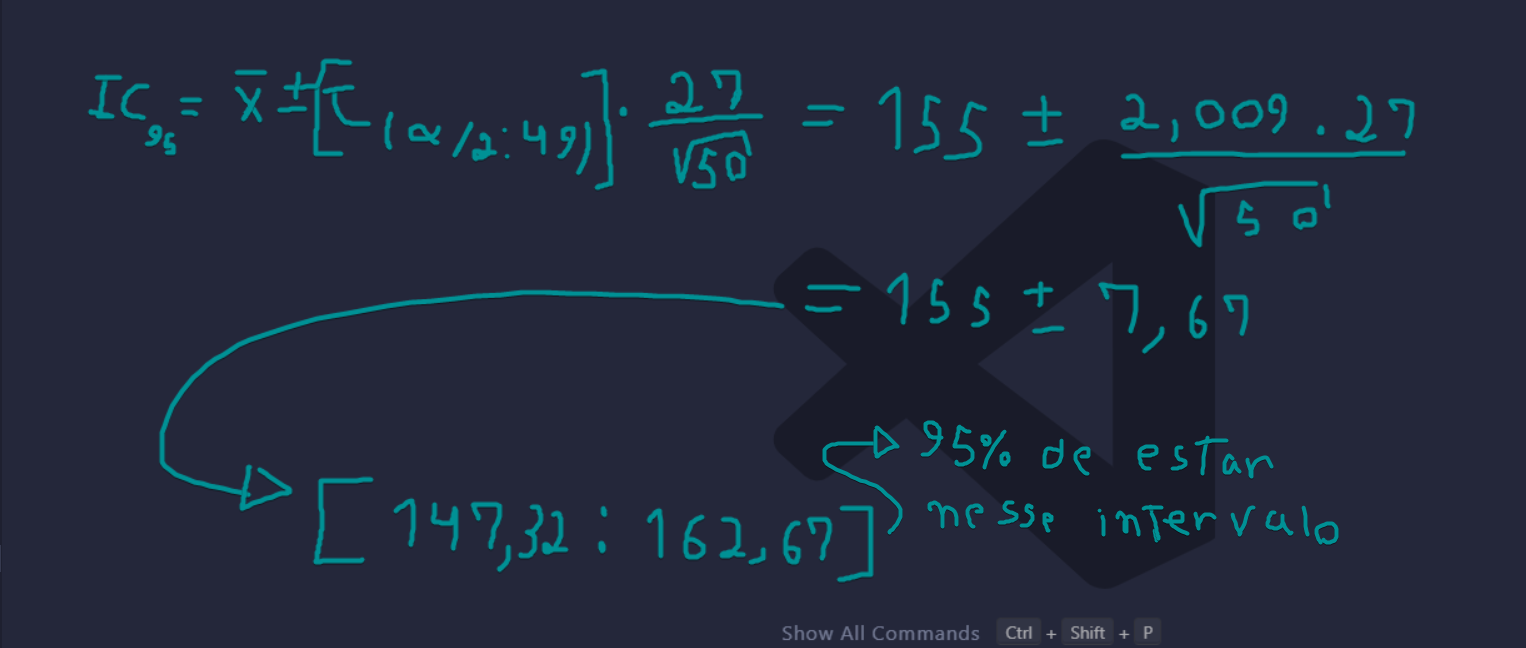 IC₉₅ = x̄ ± [t(α/2:49)] · 27/√50 = 155 ± 2,009 . 27/√50
= 155 ± 7,67
[147,32 : 162,67]
95% de estar
nesse intervalo
Show All Commands Ctrl + Shift + P